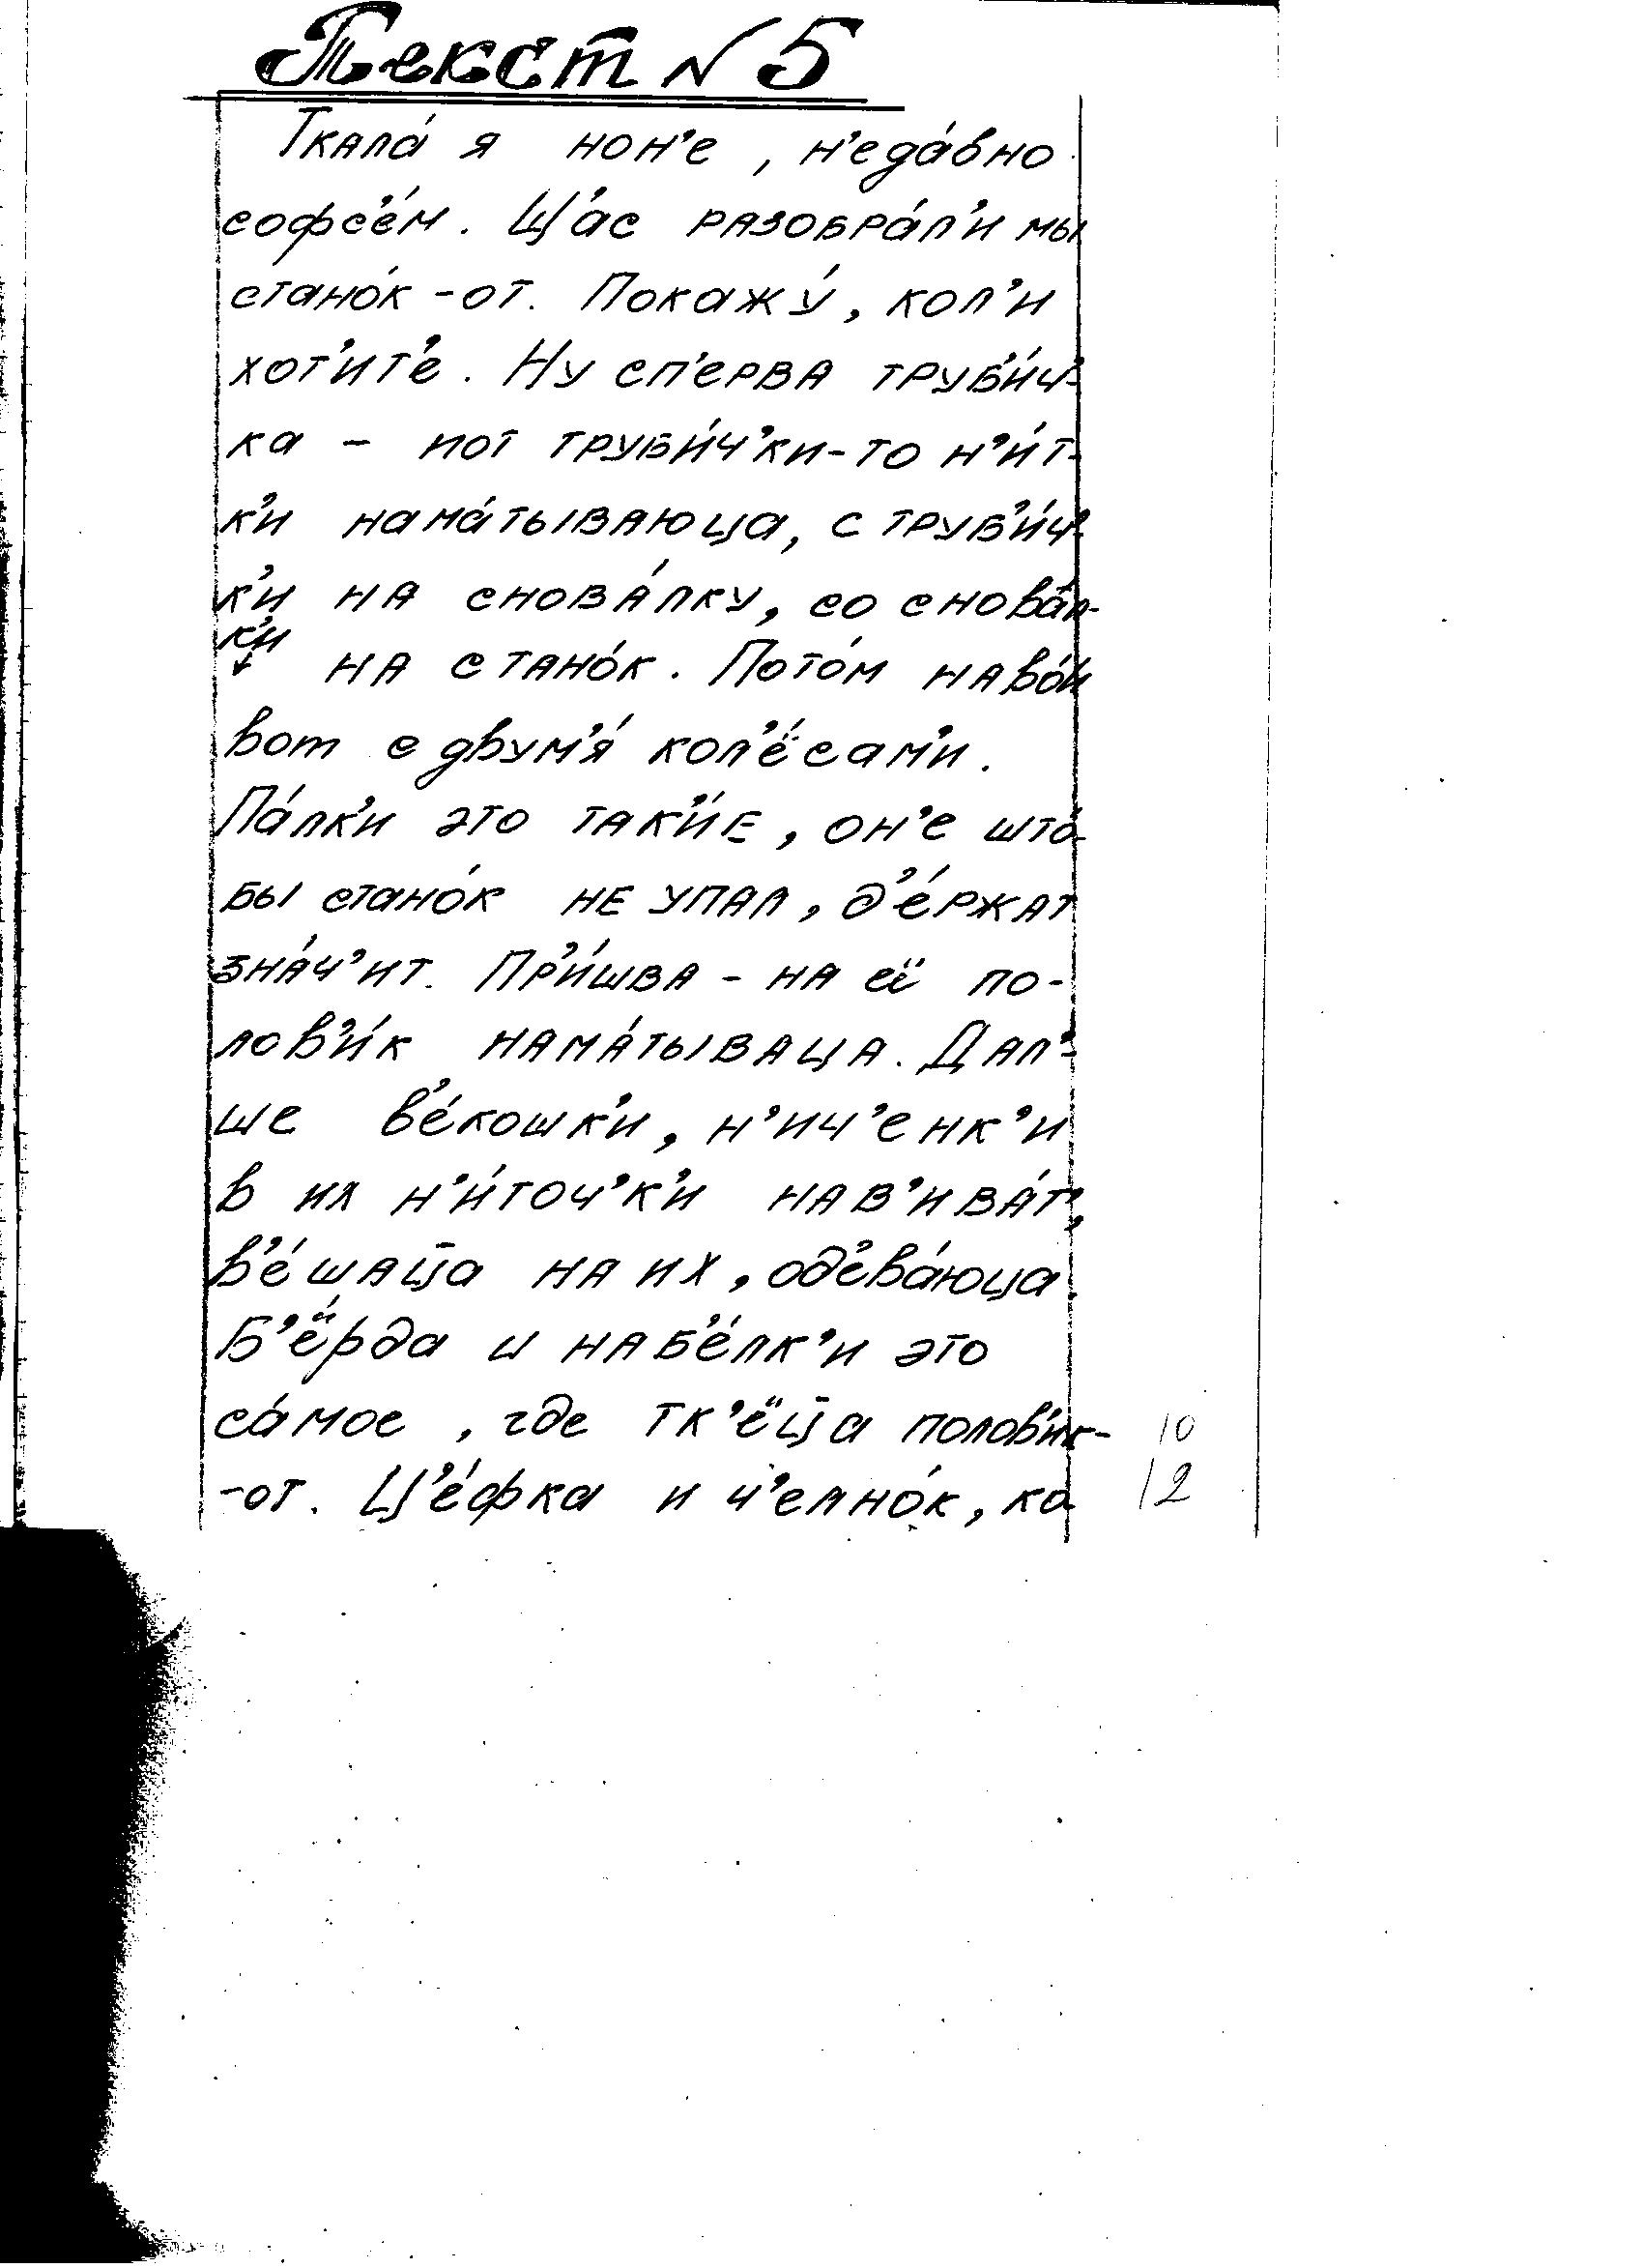 Текст № 5
Ткала́ я нон'е, н'еда́вно
софс'е́м. Щ'ас разобра́л'и мы
стано́к-от. Покажу́, кол'и
хот'ит'е. Ну сп'ерва труб'и́ч'-
ка – пот труби́ч'ки-то н'и́т-
к'и нама́тываюца, с труб'и́ч'-
к'и на снова́лку, со снова́л-
к'и на стано́к. Пото́м наво́и
вот с двум'я́ кол'ё́сам'и.
Па́лк'и это так'и́е, он'е што́-
бы стано́к не упал, д'е́ржат
зна́ч'ит. Пр'и́шва – на её по-
лов'и́к нама́тываца. Дал'-
ше в'е́кошк'и, н'ич'енк'и
в их н'и́точ'к'и нав'ива́т,
в'е́шаца на их, од'ева́юца.
Б'ё́рда и наб'е́лк'и это
са́мое, где тк'ёца полов'ик-
-от. Ц'е́фка и ч'елно́к, ко-
10
12